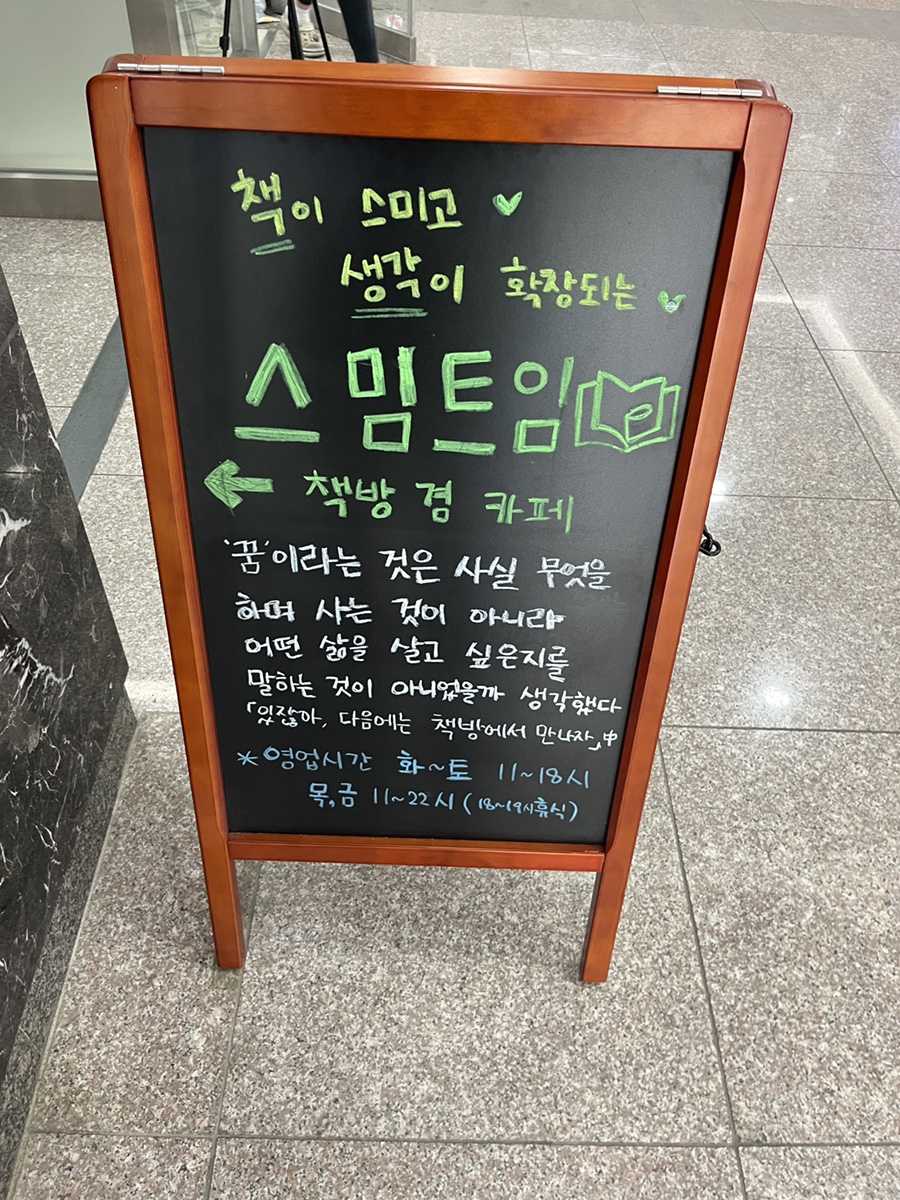 책이 스미고
생각이 확장되는
스밈트임
책방 겸 카페
'꿈'이라는 것은 사실 무엇을
하며 사는 것이 아니라
어떤 삶을 살고 싶은지를
말하는 것이 아니었을까 생각했다
「있잖아, 다음에는 책방에서 만나자」中
*영업시간 화~토 11~18시
목,금 11~22시 (18~19시휴식)